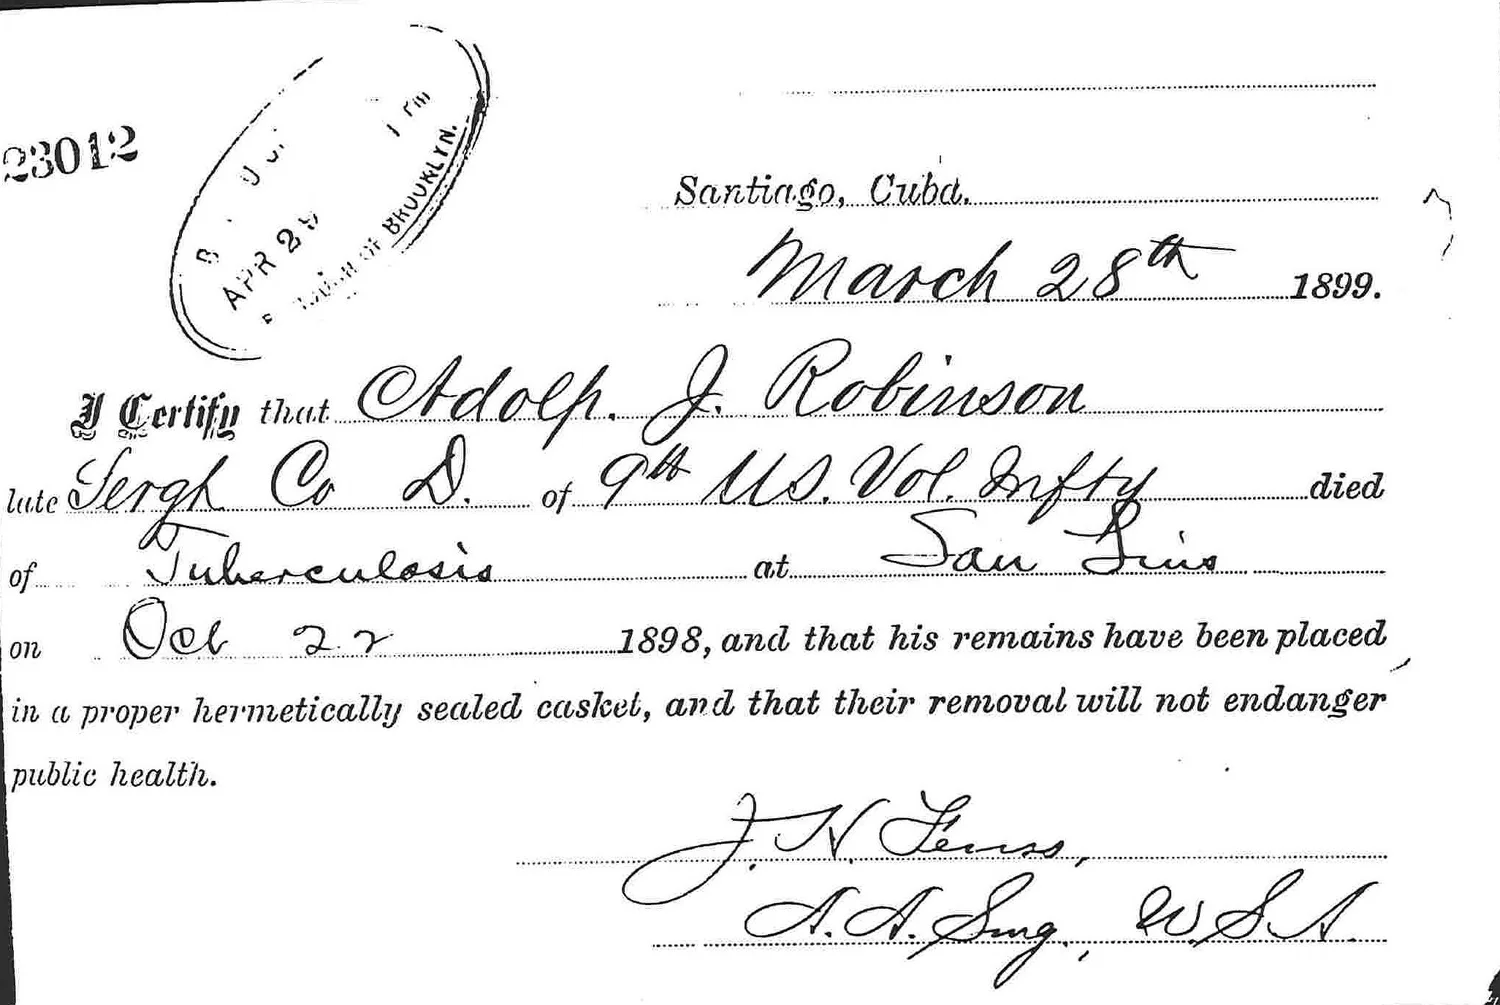 23012
APR 29
OF BROOKLYN.
Santiago, Cuba.
March 28th 1899.
I Certify that Adolp. J. Robinson
late Sergt Co D. of 9th US. Vol. Infty died
of Tuberculosis at San Luis
on Oct 22 1898, and that his remains have been placed
in a proper hermetically sealed casket, and that their removal will not endanger
public health.
J. H.
A. A. Surg., U.S.A.